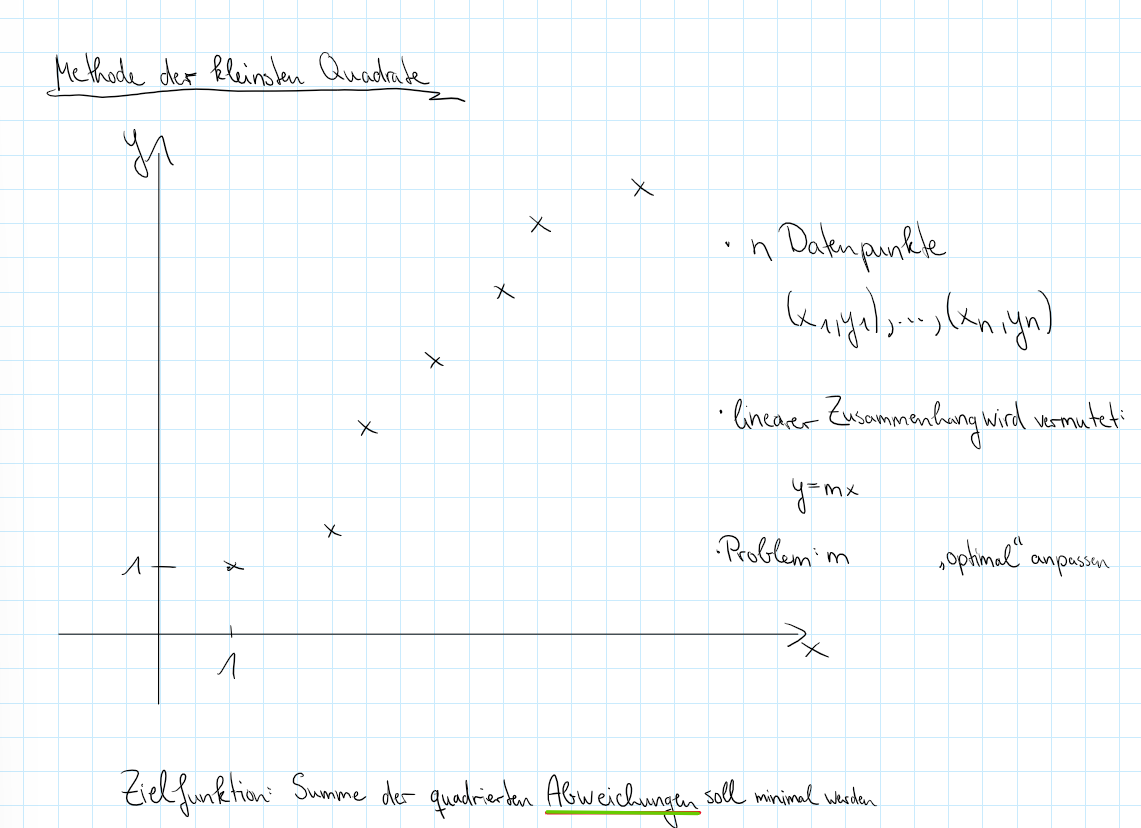 Methode der kleinsten Quadrate
y
• n Datenpunkte
(x₁,y₁),...,(xₙ,yₙ)
• linearer Zusammenhang wird vermutet:
y=mx
• Problem: m „optimal“ anpassen
1
x
1
Zielfunktion: Summe der quadrierten Abweichungen soll minimal werden